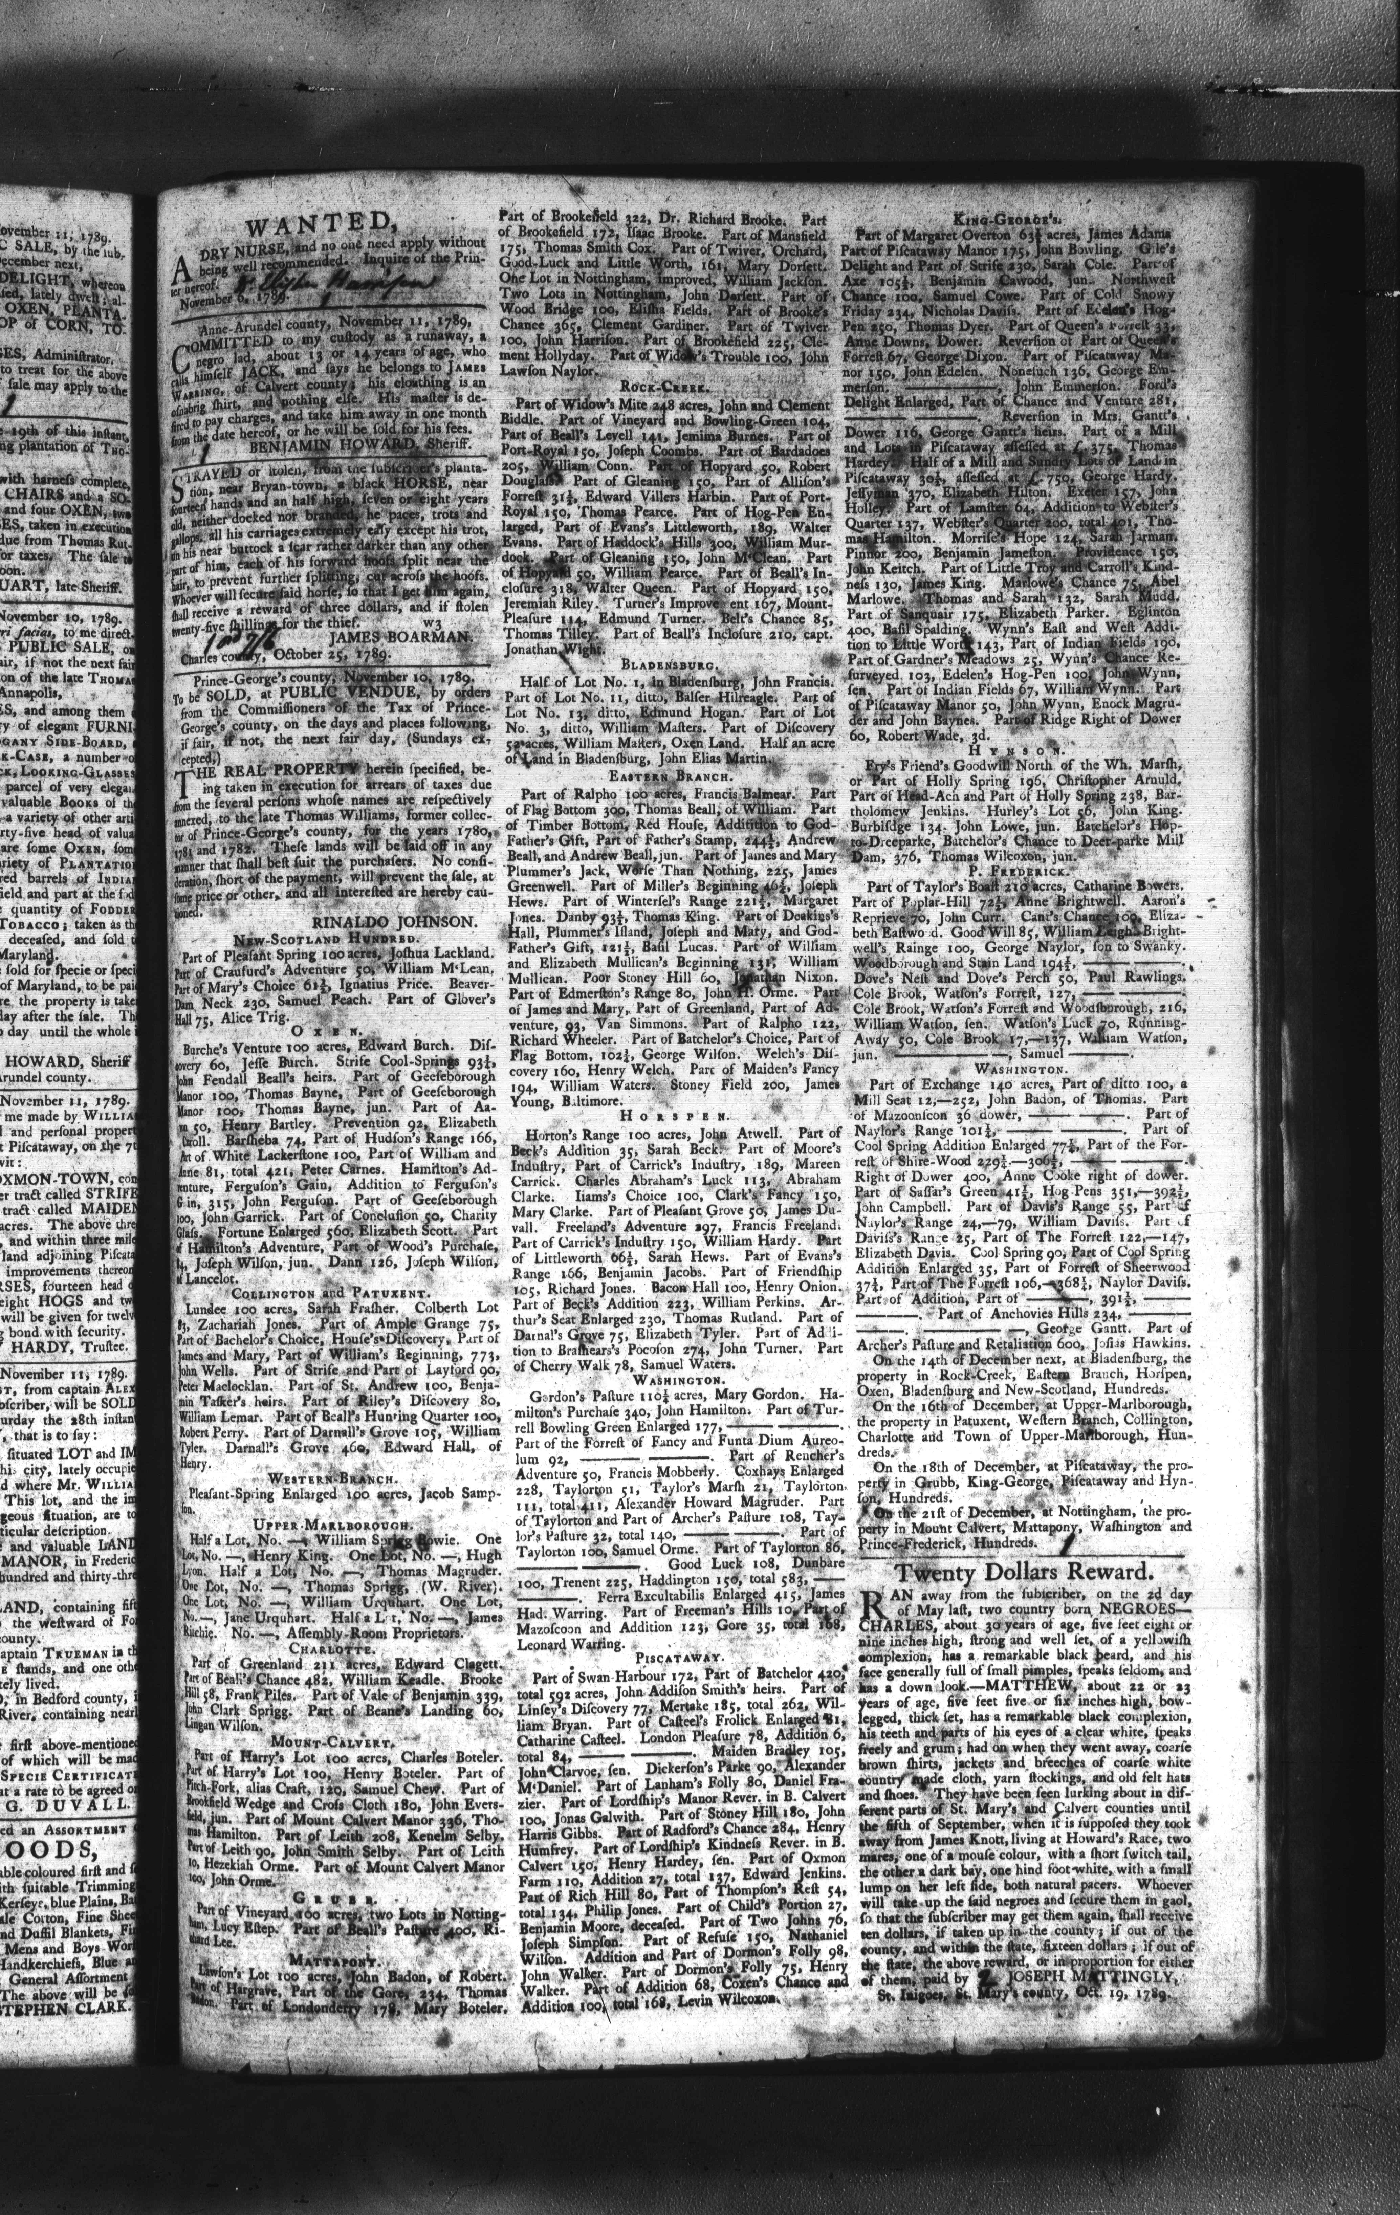 WANTED,
A DRY NURSE, and no one need apply without
being well recommended. Inquire of the Prin-
ter hereof.
November 6, 1789.
Anne-Arundel county, November 11, 1789,
COMMITTED to my custody as a runaway, a
negro lad, about 13 or 14 years of age, who
calls himself JACK, and says he belongs to JAMES
WARRING, of Calvert county; his cloathing is an
osnabrig shirt, and nothing else. His master is de-
sired to pay charges, and take him away in one month
from the date hereof, or he will be sold for his fees.
BENJAMIN HOWARD, Sheriff.
STRAYED or stolen, from the subscriber's planta-
tion, near Bryan-town, a black HORSE, near
fourteen hands and an half high, seven or eight years
old, neither docked nor branded, he paces, trots and
gallops, all his carriages extremely easy except his trot,
on his near buttock a scar rather darker than any other
part of him, each of his forward hoofs split near the
hair, to prevent further splitting, cut across the hoofs.
Whoever will secure said horse, so that I get him again,
shall receive a reward of three dollars, and if stolen
twenty-five shillings for the thief. w3
JAMES BOARMAN.
Charles county, October 25, 1789.
Prince-George's county, November 10, 1789.
To be SOLD, at PUBLIC VENDUE, by orders
from the Commissioners of the Tax of Prince-
George's county, on the days and places following,
if fair, if not, the next fair day, (Sundays ex-
cepted,)
THE REAL PROPERTY herein specified, be-
ing taken in execution for arrears of taxes due
from the several persons whose names are respectively
annexed, to the late Thomas Williams, former collec-
tor of Prince-George's county, for the years 1780,
1781 and 1782. These lands will be laid off in any
manner that shall best suit the purchasers. No consi-
deration, short of the payment, will prevent the sale, at
some price or other, and all interested are hereby cau-
tioned.
RINALDO JOHNSON.
NEW-SCOTLAND HUNDRED.
Part of Pleasant Spring 100 acres, Joshua Lackland.
Part of Craufurd's Adventure 50, William M'Lean.
Part of Mary's Choice 61½, Ignatius Price. Beaver-
Dam Neck 230, Samuel Peach. Part of Glover's
Hall 75, Alice Trig.
OXEN.
Burche's Venture 100 acres, Edward Burch. Dis-
covery 60, Jesse Burch. Strife Cool-Springs 93¾,
John Fendall Beall's heirs. Part of Geeseborough
Manor 100, Thomas Bayne, Part of Geeseborough
Manor 100, Thomas Bayne, jun. Part of Aa-
ron 50, Henry Bartley. Prevention 92, Elizabeth
Carroll. Barsheba 74, Part of Hudson's Range 166,
Part of White Lackerstone 100, Part of William and
Anne 81, total 421, Peter Carnes. Hamilton's Ad-
venture, Ferguson's Gain, Addition to Ferguson's
Gain, 315, John Ferguson. Part of Geeseborough
100, John Garrick. Part of Conclusion 50, Charity
Glass. Fortune Enlarged 560, Elizabeth Scott. Part
of Hamilton's Adventure, Part of Wood's Purchase,
Joseph Wilson, jun. Dann 126, Joseph Wilson,
of Lancelot.
COLLINGTON AND PATUXENT.
Lundee 100 acres, Sarah Frasher. Colberth Lot
83, Zachariah Jones. Part of Ample Grange 75,
Part of Bachelor's Choice, House's Discovery, Part of
James and Mary, Part of William's Beginning, 773,
John Wells. Part of Strife and Part of Layford 90,
Peter Maclocklan. Part of St. Andrew 100, Benja-
min Tasker's heirs. Part of Riley's Discovery 80,
William Lemar. Part of Beall's Hunting Quarter 100,
Robert Perry. Part of Darnall's Grove 105, William
Tyler. Darnall's Grove 460, Edward Hall, of
Henry.
WESTERN-BRANCH.
Pleasant-Spring Enlarged 100 acres, Jacob Samp-
son.
UPPER-MARLBOROUGH.
Half a Lot, No. —, William Sprigg Bowie. One
Lot, No. —, Henry King. One Lot, No. —, Hugh
Lyon. Half a Lot, No. —, Thomas Magruder.
One Lot, No. —, Thomas Sprigg, (W. River).
One Lot, No. —, William Urquhart. One Lot,
No.—, Jane Urquhart. Half a Lot, No. —, James
Ritchie. No. —, Assembly-Room Proprietors.
CHARLOTTE.
Part of Greenland 211 acres, Edward Clagett.
Part of Beall's Chance 482, William Keadle. Brooke
Hill 58, Frank Piles. Part of Vale of Benjamin 339,
John Clark Sprigg. Part of Beane's Landing 60,
Lingan Wilson.
MOUNT-CALVERT.
Part of Harry's Lot 100 acres, Charles Boteler.
Part of Harry's Lot 100, Henry Boteler. Part of
Pitch-Fork, alias Craft, 120, Samuel Chew. Part of
Brookfield Wedge and Cross Cloth 180, John Evers-
field, jun. Part of Mount Calvert Manor 336, Tho-
mas Hamilton. Part of Leith 208, Kenelm Selby.
Part of Leith 90, John Smith Selby. Part of Leith
Hezekiah Orme. Part of Mount Calvert Manor
100, John Orme.
GRUBB.
Part of Vineyard 100 acres, two Lots in Notting-
ham, Lucy Estep. Part of Beall's Pasture 400, Ri-
chard Lee.
MATTAPONY.
Lawson's Lot 100 acres, John Badon, of Robert.
Part of Hargrave, Part of the Gore, 234, Thomas
Badon. Part of Londonderry 178, Mary Boteler.
Part of Brookefield 322, Dr. Richard Brooke. Part
of Brookefield 172, Isaac Brooke. Part of Mansfield
175, Thomas Smith Cox. Part of Twiver, Orchard,
Good-Luck and Little Worth, 161, Mary Dorsett.
One Lot in Nottingham, improved, William Jackson.
Two Lots in Nottingham, John Darsett. Part of
Wood Bridge 100, Elisha Fields. Part of Brooke's
Chance 365, Clement Gardiner. Part of Twiver
100, John Harrison. Part of Brookefield 225, Cle-
ment Hollyday. Part of Widow's Trouble 100, John
Lawson Naylor.
ROCK-CREEK.
Part of Widow's Mite 248 acres, John and Clement
Biddle. Part of Vineyard and Bowling-Green 104,
Part of Beall's Levell 141, Jemima Burnes. Part of
Port-Royal 150, Joseph Coombs. Part of Bardadoes
205, William Conn. Part of Hopyard 50, Robert
Douglass. Part of Gleaning 150, Part of Allison's
Forrest 31½, Edward Villers Harbin. Part of Port-
Royal 150, Thomas Pearce. Part of Hog-Pen En-
larged, Part of Evans's Littleworth, 189, Walter
Evans. Part of Haddock's Hills 300, William Mur-
dock. Part of Gleaning 150, John M'Clean. Part
of Hopyard 50, William Pearce. Part of Beall's In-
closure 318, Walter Queen. Part of Hopyard 150,
Jeremiah Riley. Turner's Improve ent 167, Mount-
Pleasure 114, Edmund Turner. Belt's Chance 85,
Thomas Tilley. Part of Beall's Inclosure 210, capt.
Jonathan Wight.
BLADENSBURG.
Half of Lot No. 1, in Bladensburg, John Francis.
Part of Lot No. 11, ditto, Balser Hilreagle. Part of
Lot No. 13, ditto, Edmund Hogan. Part of Lot
No. 3, ditto, William Masters. Part of Discovery
52 acres, William Masters, Oxen Land. Half an acre
of Land in Bladensburg, John Elias Martin.
EASTERN BRANCH.
Part of Ralpho 100 acres, Francis Balmear. Part
of Flag Bottom 300, Thomas Beall, of William. Part
of Timber Bottom, Red House, Additition to God-
Father's Gift, Part of Father's Stamp, 244½, Andrew
Beall, and Andrew Beall, jun. Part of James and Mary
Plummer's Jack, Worse Than Nothing, 225, James
Greenwell. Part of Miller's Beginning 46½, Joseph
Hews. Part of Wintersel's Range 221½, Margaret
Jones. Danby 93½, Thomas King. Part of Deakins's
Hall, Plummer's Island, Joseph and Mary, and God-
Father's Gift, 121½, Basil Lucas. Part of William
and Elizabeth Mullican's Beginning 131, William
Mullican. Poor Stoney Hill 60, Jonathan Nixon.
Part of Edmerston's Range 80, John H. Orme. Part
of James and Mary, Part of Greenland, Part of Ad-
venture, 93, Van Simmons. Part of Ralpho 122,
Richard Wheeler. Part of Batchelor's Choice, Part of
Flag Bottom, 102½, George Wilson. Welch's Dis-
covery 160, Henry Welch. Part of Maiden's Fancy
194, William Waters. Stoney Field 200, James
Young, Baltimore.
HORSPEN.
Horton's Range 100 acres, John Atwell. Part of
Beck's Addition 35, Sarah Beck. Part of Moore's
Industry, Part of Carrick's Industry, 189, Mareen
Carrick. Charles Abraham's Luck 113, Abraham
Clarke. Iiams's Choice 100, Clark's Fancy 150,
Mary Clarke. Part of Pleasant Grove 50, James Du-
vall. Freeland's Adventure 297, Francis Freeland.
Part of Carrick's Industry 150, William Hardy. Part
of Littleworth 66½, Sarah Hews. Part of Evans's
Range 166, Benjamin Jacobs. Part of Friendship
105, Richard Jones. Bacon Hall 100, Henry Onion.
Part of Beck's Addition 223, William Perkins. Ar-
thur's Seat Enlarged 230, Thomas Rutland. Part of
Darnal's Grove 75, Elizabeth Tyler. Part of Addi-
tion to Brashears's Pocoson 274, John Turner. Part
of Cherry Walk 78, Samuel Waters.
WASHINGTON.
Gordon's Pasture 110¼ acres, Mary Gordon. Ha-
milton's Purchase 340, John Hamilton. Part of Tur-
rell Bowling Green Enlarged 177, —— ——.
Part of the Forrest of Fancy and Funta Dium Aureo-
lum 92, —— ——. Part of Rencher's
Adventure 50, Francis Mobberly. Coxhays Enlarged
228, Taylorton 51, Taylor's Marsh 21, Taylorton
111, total 411, Alexander Howard Magruder. Part
of Taylorton and Part of Archer's Pasture 108, Tay-
lor's Pasture 32, total 140, —— ——. Part of
Taylorton 100, Samuel Orme. Part of Taylorton 86,
—— ——. Good Luck 108, Dunbare
100, Trenent 225, Haddington 150, total 583, ——
——. Ferra Excultabilis Enlarged 415, James
Had. Warring. Part of Freeman's Hills 10, Part of
Mazoscoon and Addition 123, Gore 35, total 168,
Leonard Warring.
PISCATAWAY.
Part of Swan Harbour 172, Part of Batchelor 420,
total 592 acres, John Addison Smith's heirs. Part of
Linsey's Discovery 77, Mertake 185, total 262, Wil-
liam Bryan. Part of Casteel's Frolick Enlarged 81,
Catharine Casteel. London Pleasure 78, Addition 6,
total 84, —— ——. Maiden Bradley 105,
John Clarvoe, sen. Dickerson's Parke 90, Alexander
M'Daniel. Part of Lanham's Folly 80, Daniel Fra-
zier. Part of Lordship's Manor Rever. in B. Calvert
100, Jonas Galwith. Part of Stoney Hill 180, John
Harris Gibbs. Part of Radford's Chance 284, Henry
Humfrey. Part of Lordship's Kindness Rever. in B.
Calvert 150, Henry Hardey, sen. Part of Oxmon
Farm 110, Addition 27, total 137, Edward Jenkins.
Part of Rich Hill 80, Part of Thompson's Rest 54,
total 134, Philip Jones. Part of Child's Portion 27,
Benjamin Moore, deceased. Part of Two Johns 76,
Joseph Simpson. Part of Refuse 150, Nathaniel
Wilson. Addition and Part of Dormon's Folly 98,
John Walker. Part of Dormon's Folly 75, Henry
Walker. Part of Addition 68, Coxen's Chance and
Addition 100, total 168, Levin Wilcoxon.
KING-GEORGE'S.
Part of Margaret Overton 63½ acres, James Adams
Part of Piscataway Manor 175, John Bowling. Gile's
Delight and Part of Strife 230, Sarah Cole. Part of
Axe 105½, Benjamin Cawood, jun. Northwest
Chance 100, Samuel Cowe. Part of Cold Snowy
Friday 234, Nicholas Daviss. Part of Ecelen's Hog-
Pen 250, Thomas Dyer. Part of Queen's Forrest 33,
Anne Downs, Dower. Reversion of Part of Queen's
Forrest 67, George Dixon. Part of Piscataway Ma-
nor 150, John Edelen. Nonesuch 136, George Em-
merson. ——, John Emmerson. Ford's
Delight Enlarged, Part of Chance and Venture 281,
——. Reversion in Mrs. Gantt's
Dower 116, George Gantt's heirs. Part of a Mill
and Lots in Piscataway assessed at £. 375, Thomas
Hardey. Half of a Mill and Sundry Lots of Land in
Piscataway 30½, assessed at £. 750, George Hardy.
Jessyman 370, Elizabeth Hilton. Exeter 157, John
Holley. Part of Lamster 64, Addition to Webster's
Quarter 137, Webster's Quarter 200, total 401, Tho-
mas Hamilton. Morris's Hope 124, Sarah Jarman.
Pinnor 200, Benjamin Jameston. Providence 150,
John Keitch. Part of Little Troy and Carroll's Kind-
ness 130, James King. Marlowe's Chance 75, Abel
Marlowe. Thomas and Sarah 132, Sarah Mudd.
Part of Sanquair 175, Elizabeth Parker. Eglinton
400, Basil Spalding. Wynn's East and West Addi-
tion to Little Worth 143, Part of Indian Fields 190,
Part of Gardner's Meadows 25, Wynn's Chance Re-
surveyed 103, Edelen's Hog-Pen 100, John Wynn,
sen. Part of Indian Fields 67, William Wynn. Part
of Piscataway Manor 50, John Wynn, Enock Magru-
der and John Baynes. Part of Ridge Right of Dower
60, Robert Wade, 3d.
HYNSON.
Fry's Friend's Goodwill North of the Wh. Marsh,
or Part of Holly Spring 196, Christopher Arnuld.
Part of Head-Ach and Part of Holly Spring 238, Bar-
tholomew Jenkins. Hurley's Lot 56, John King.
Burbisdge 134. John Lowe, jun. Batchelor's Hop-
to-Dreeparke, Batchelor's Chance to Deer-parke Mill
Dam, 376, Thomas Wilcoxon, jun.
P. FREDERICK.
Part of Taylor's Boast 210 acres, Catharine Bowers.
Part of Poplar-Hill 72½, Anne Brightwell. Aaron's
Reprieve 70, John Curr. Cant's Chance 100, Eliza-
beth Eastwo d. Good Will 85, William Leigh. Bright-
well's Rainge 100, George Naylor, son to Swanky.
Woodborough and Stain Land 194½, —— ——.
Dove's Nest and Dove's Perch 50, Paul Rawlings.
Cole Brook, Watson's Forrest, 127, —— ——.
Cole Brook, Watson's Forrest and Woodsborough, 216,
William Watson, sen. Watson's Luck 70, Running-
Away 50, Cole Brook 17,—137, William Watson,
jun. —— ——, Samuel ——.
WASHINGTON.
Part of Exchange 140 acres, Part of ditto 100, a
Mill Seat 12,—252, John Badon, of Thomas. Part
of Mazoonscon 36 dower, —— ——. Part of
Naylor's Range 101½, —— ——. Part of
Cool Spring Addition Enlarged 77½, Part of the For-
rest of Shire-Wood 229½,—306½, —— ——.
Right of Dower 400, Anne Cooke right of dower.
Part of Sassar's Green 41½, Hog Pens 351,—392½,
John Campbell. Part of Davis's Range 55, Part of
Naylor's Range 24,—79, William Daviss. Part of
Daviss's Range 25, Part of The Forrest 122,—147,
Elizabeth Davis. Cool Spring 90, Part of Cool Spring
Addition Enlarged 35, Part of Forrest of Sheerwood
37½, Part of The Forrest 106,—368½, Naylor Daviss.
Part of Addition, Part of ——, 391½, ——
——. Part of Anchovies Hills 234, ——
——. ——, George Gantt. Part of
Archer's Pasture and Retaliation 600, Josias Hawkins.
On the 14th of December next, at Bladensburg, the
property in Rock-Creek, Eastern Branch, Horspen,
Oxen, Bladensburg and New-Scotland, Hundreds.
On the 16th of December, at Upper-Marlborough,
the property in Patuxent, Western Branch, Collington,
Charlotte and Town of Upper-Marlborough, Hun-
dreds.
On the 18th of December, at Piscataway, the pro-
perty in Grubb, King-George, Piscataway and Hyn-
son, Hundreds.
On the 21st of December, at Nottingham, the pro-
perty in Mount Calvert, Mattapony, Washington and
Prince-Frederick, Hundreds.
Twenty Dollars Reward.
RAN away from the subscriber, on the 2d day
of May last, two country born NEGROES—
CHARLES, about 30 years of age, five feet eight or
nine inches high, strong and well set, of a yellowish
complexion, has a remarkable black beard, and his
face generally full of small pimples, speaks seldom, and
has a down look.—MATTHEW, about 22 or 23
years of age, five feet five or six inches high, bow-
legged, thick set, has a remarkable black complexion,
his teeth and parts of his eyes of a clear white, speaks
freely and grum; had on when they went away, coarse
brown shirts, jackets and breeches of coarse white
country made cloth, yarn stockings, and old felt hats
and shoes. They have been seen lurking about in dif-
ferent parts of St. Mary's and Calvert counties until
the fifth of September, when it is supposed they took
away from James Knott, living at Howard's Race, two
mares, one of a mouse colour, with a short switch tail,
the other a dark bay, one hind foot white, with a small
lump on her left side, both natural pacers. Whoever
will take up the said negroes and secure them in gaol,
so that the subscriber may get them again, shall receive
ten dollars, if taken up in the county; if out of the
county, and within the state, sixteen dollars; if out of
the state, the above reward, or in proportion for either
of them, paid by JOSEPH MATTINGLY,
St. Inigoes, St. Mary's county, Oct. 19, 1789.